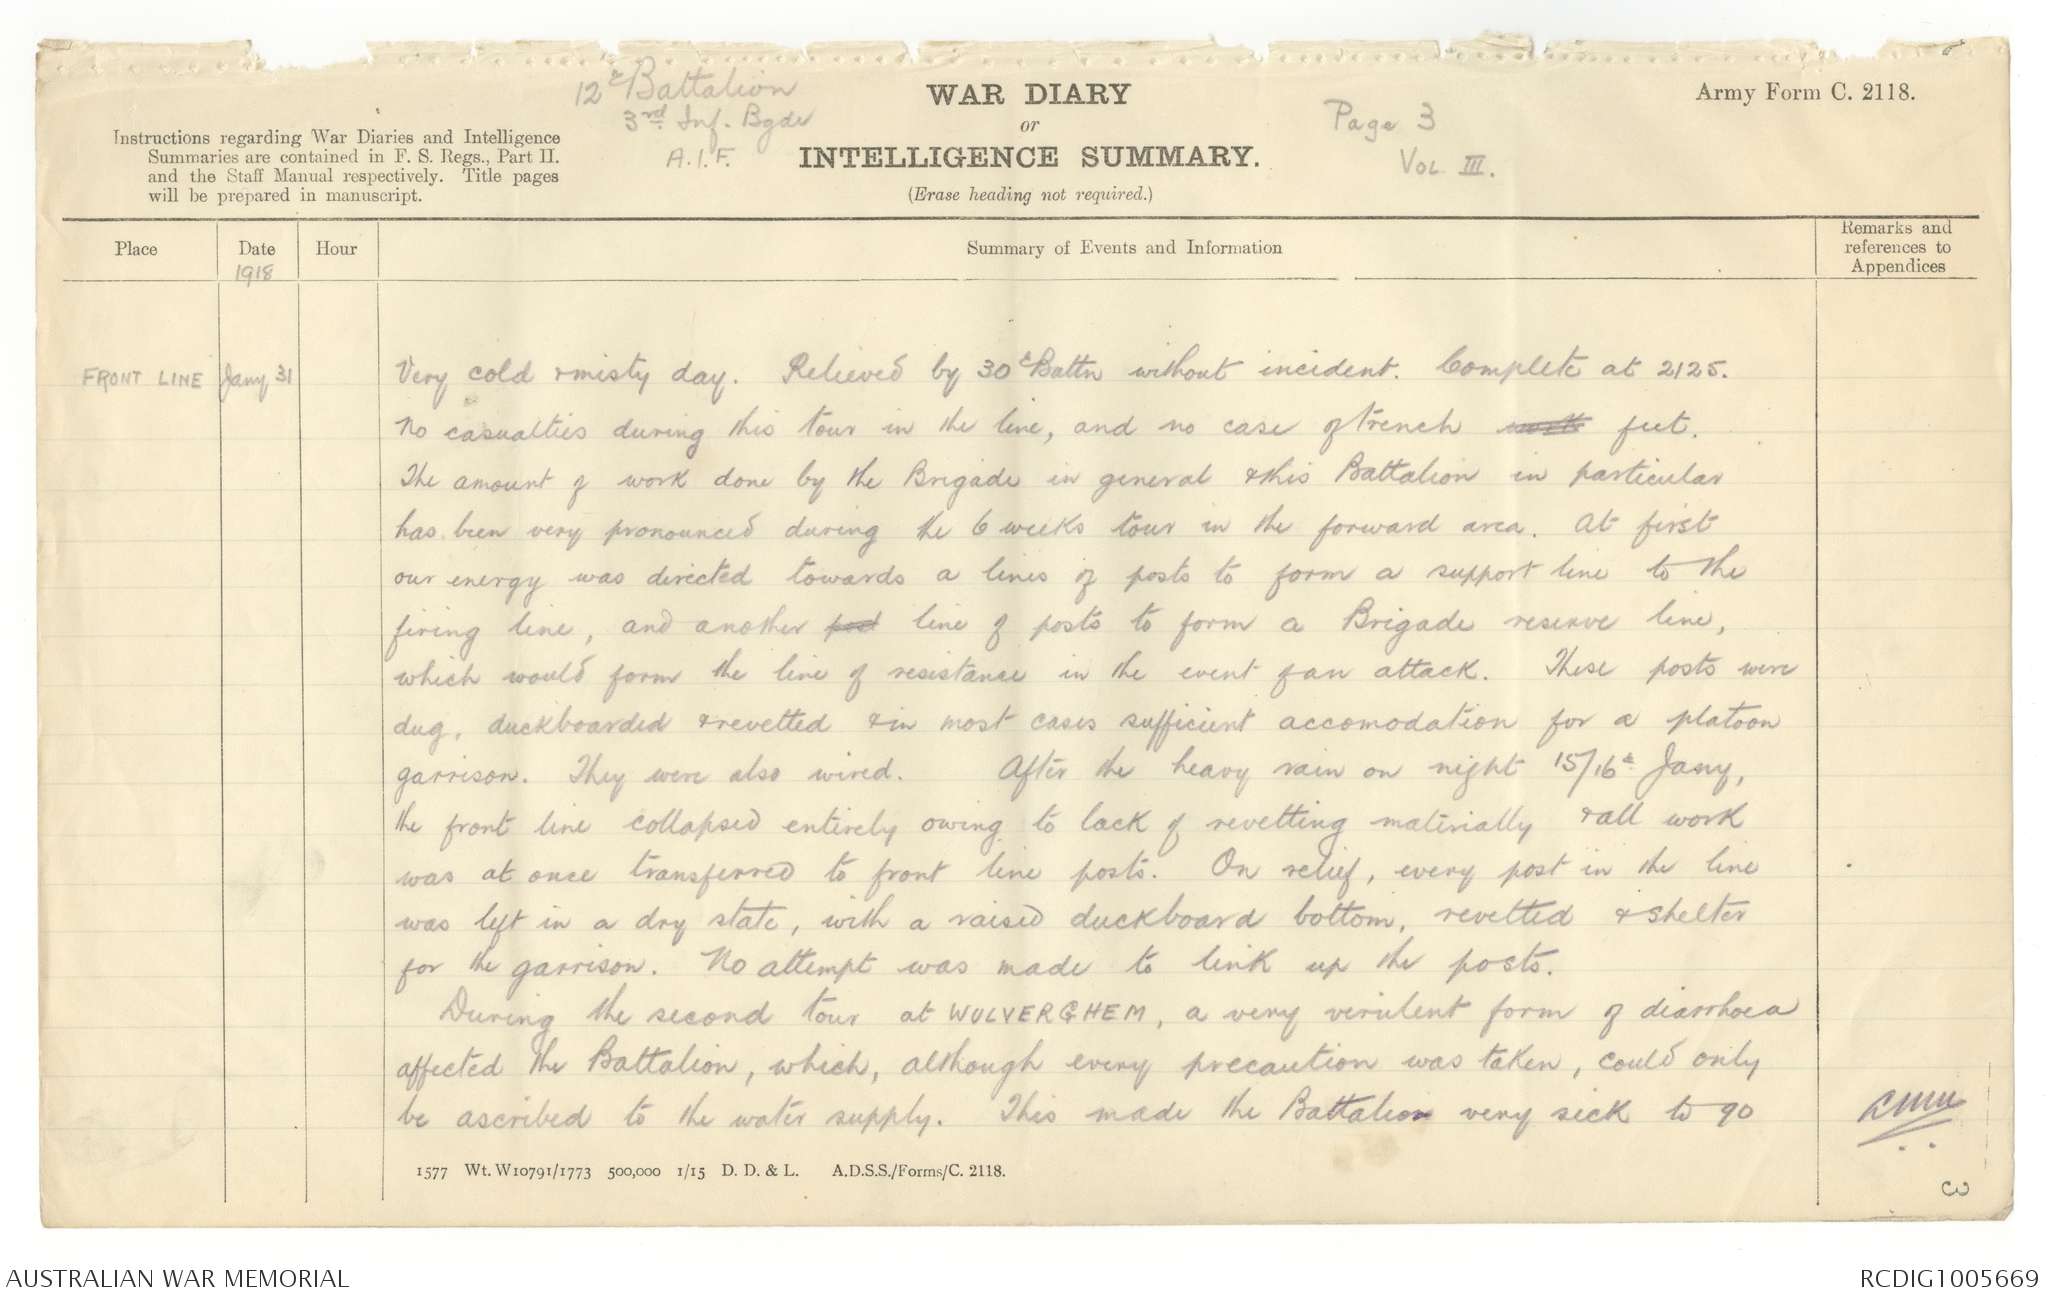 12th Battalion
3rd Inf. Bgde
A.I.F.
WAR DIARY
or
INTELLIGENCE SUMMARY.
(Erase heading not required.)
Page 3
Vol III.
Army Form C. 2118.
Instructions regarding War Diaries and Intelligence
Summaries are contained in F. S. Regs., Part II.
and the Staff Manual respectively. Title pages
will be prepared in manuscript.
Place
Date
1918
Hour
Summary of Events and Information
Remarks and
references to
Appendices
FRONT LINE Jany 31 Very cold & misty day. Relieved by 30th Battn without incident. Complete at 2125.
No casualties during this tour in the line, and no case of trench work feet.
The amount of work done by the Brigade in general & this Battalion in particular
has been very pronounced during the 6 weeks tour in the forward area. At first
our energy was directed towards a lines of posts to form a support line to the
firing line, and another pod line of posts to form a Brigade reserve line,
which would form the line of resistance in the event of an attack. These posts were
dug, duckboarded & revetted & in most cases sufficient accomodation for a platoon
garrison. They were also wired. After the heavy rain on night 15/16th Jany,
the front line collapsed entirely owing to lack of revetting materially & all work
was at once transferred to front line posts. On relief, every post in the line
was left in a dry state, with a raised duckboard bottom, revetted & shelter
for the garrison. No attempt was made to link up the posts.
During the second tour at WULVERGHEM, a very virulent form of diarrhoea
affected the Battalion, which, although every precaution was taken, could only
be ascribed to the water supply. This made the Battalion very sick to 90
3
1577 Wt. W10791/1773 500,000 1/15 D. D. & L. A.D.S.S./Forms/C. 2118.
AUSTRALIAN WAR MEMORIAL
RCDIG1005669